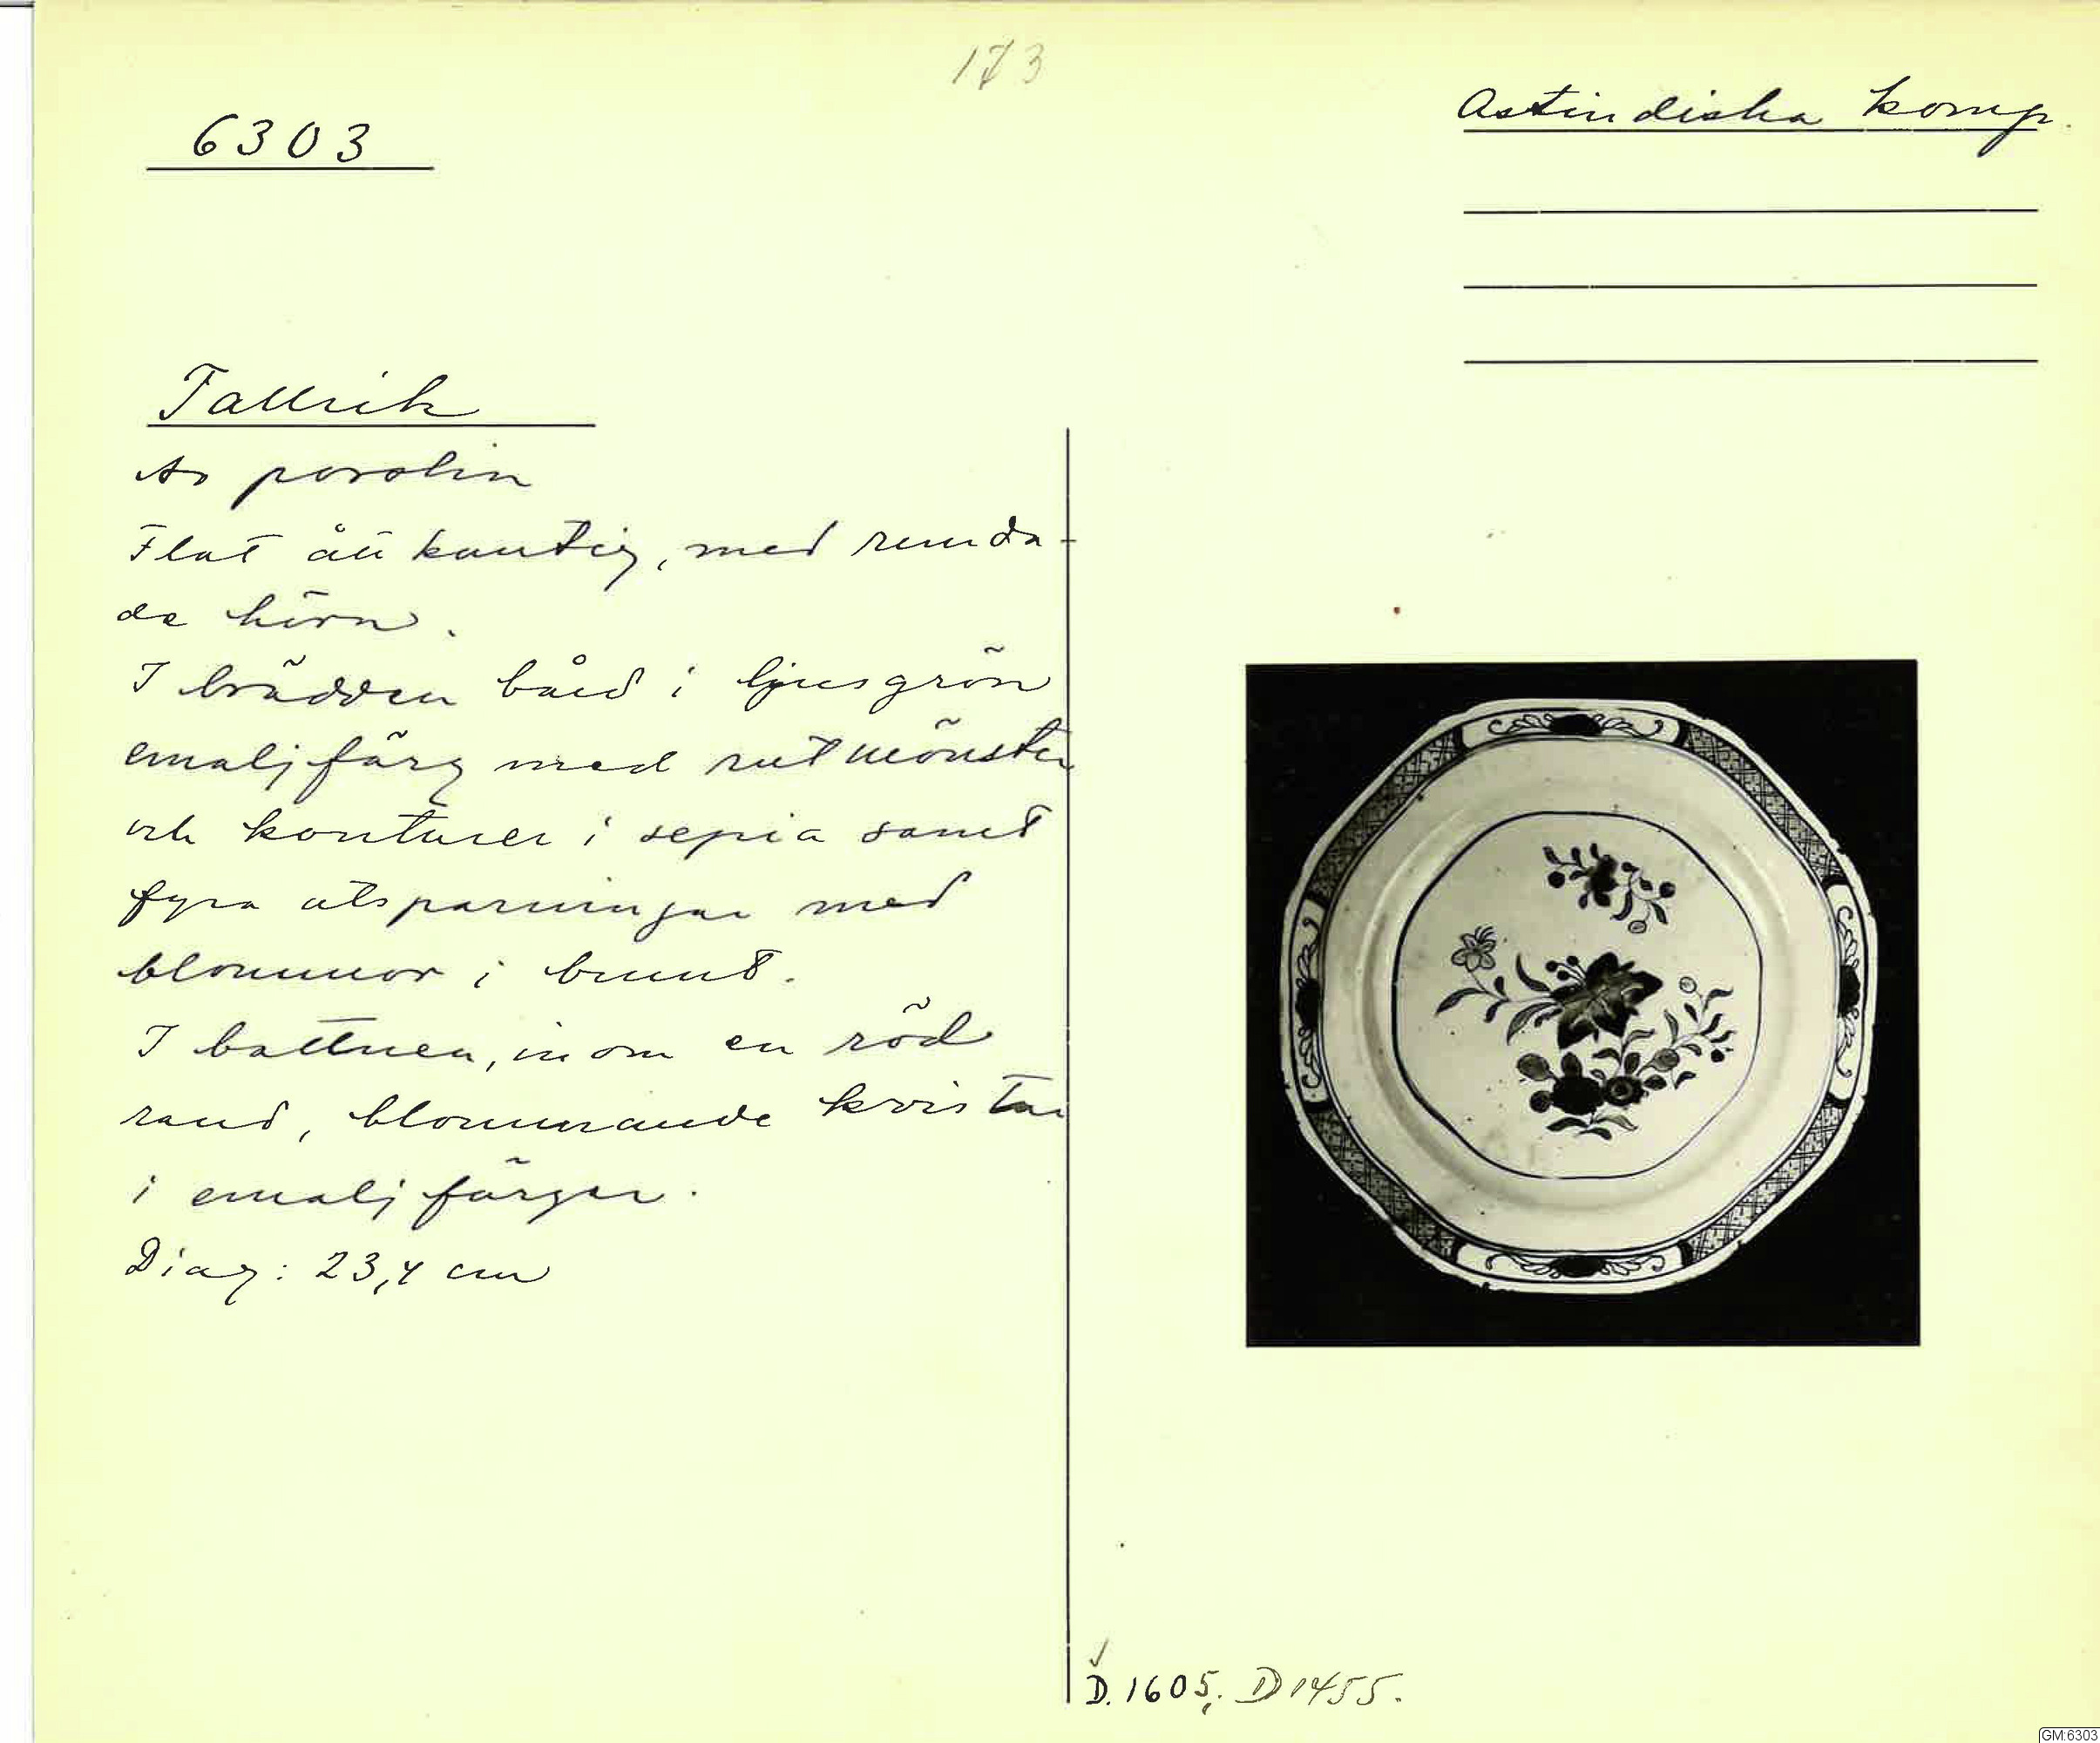 173
6303
Ostindiska komp.
Tallrik
Av porslin
Flat åttkantig, med runda-
de hörn.
I brädden bård i ljusgrön
emaljfärg med rutmönster
och konturer i sepia samt
fyra utsparningar med
blommor i brunt.
I bottnen, inom en röd
rand, blommande kvistar
i emaljfärger.
Diag: 23,4 cm
D. 1605; D 1455.
GM:6303